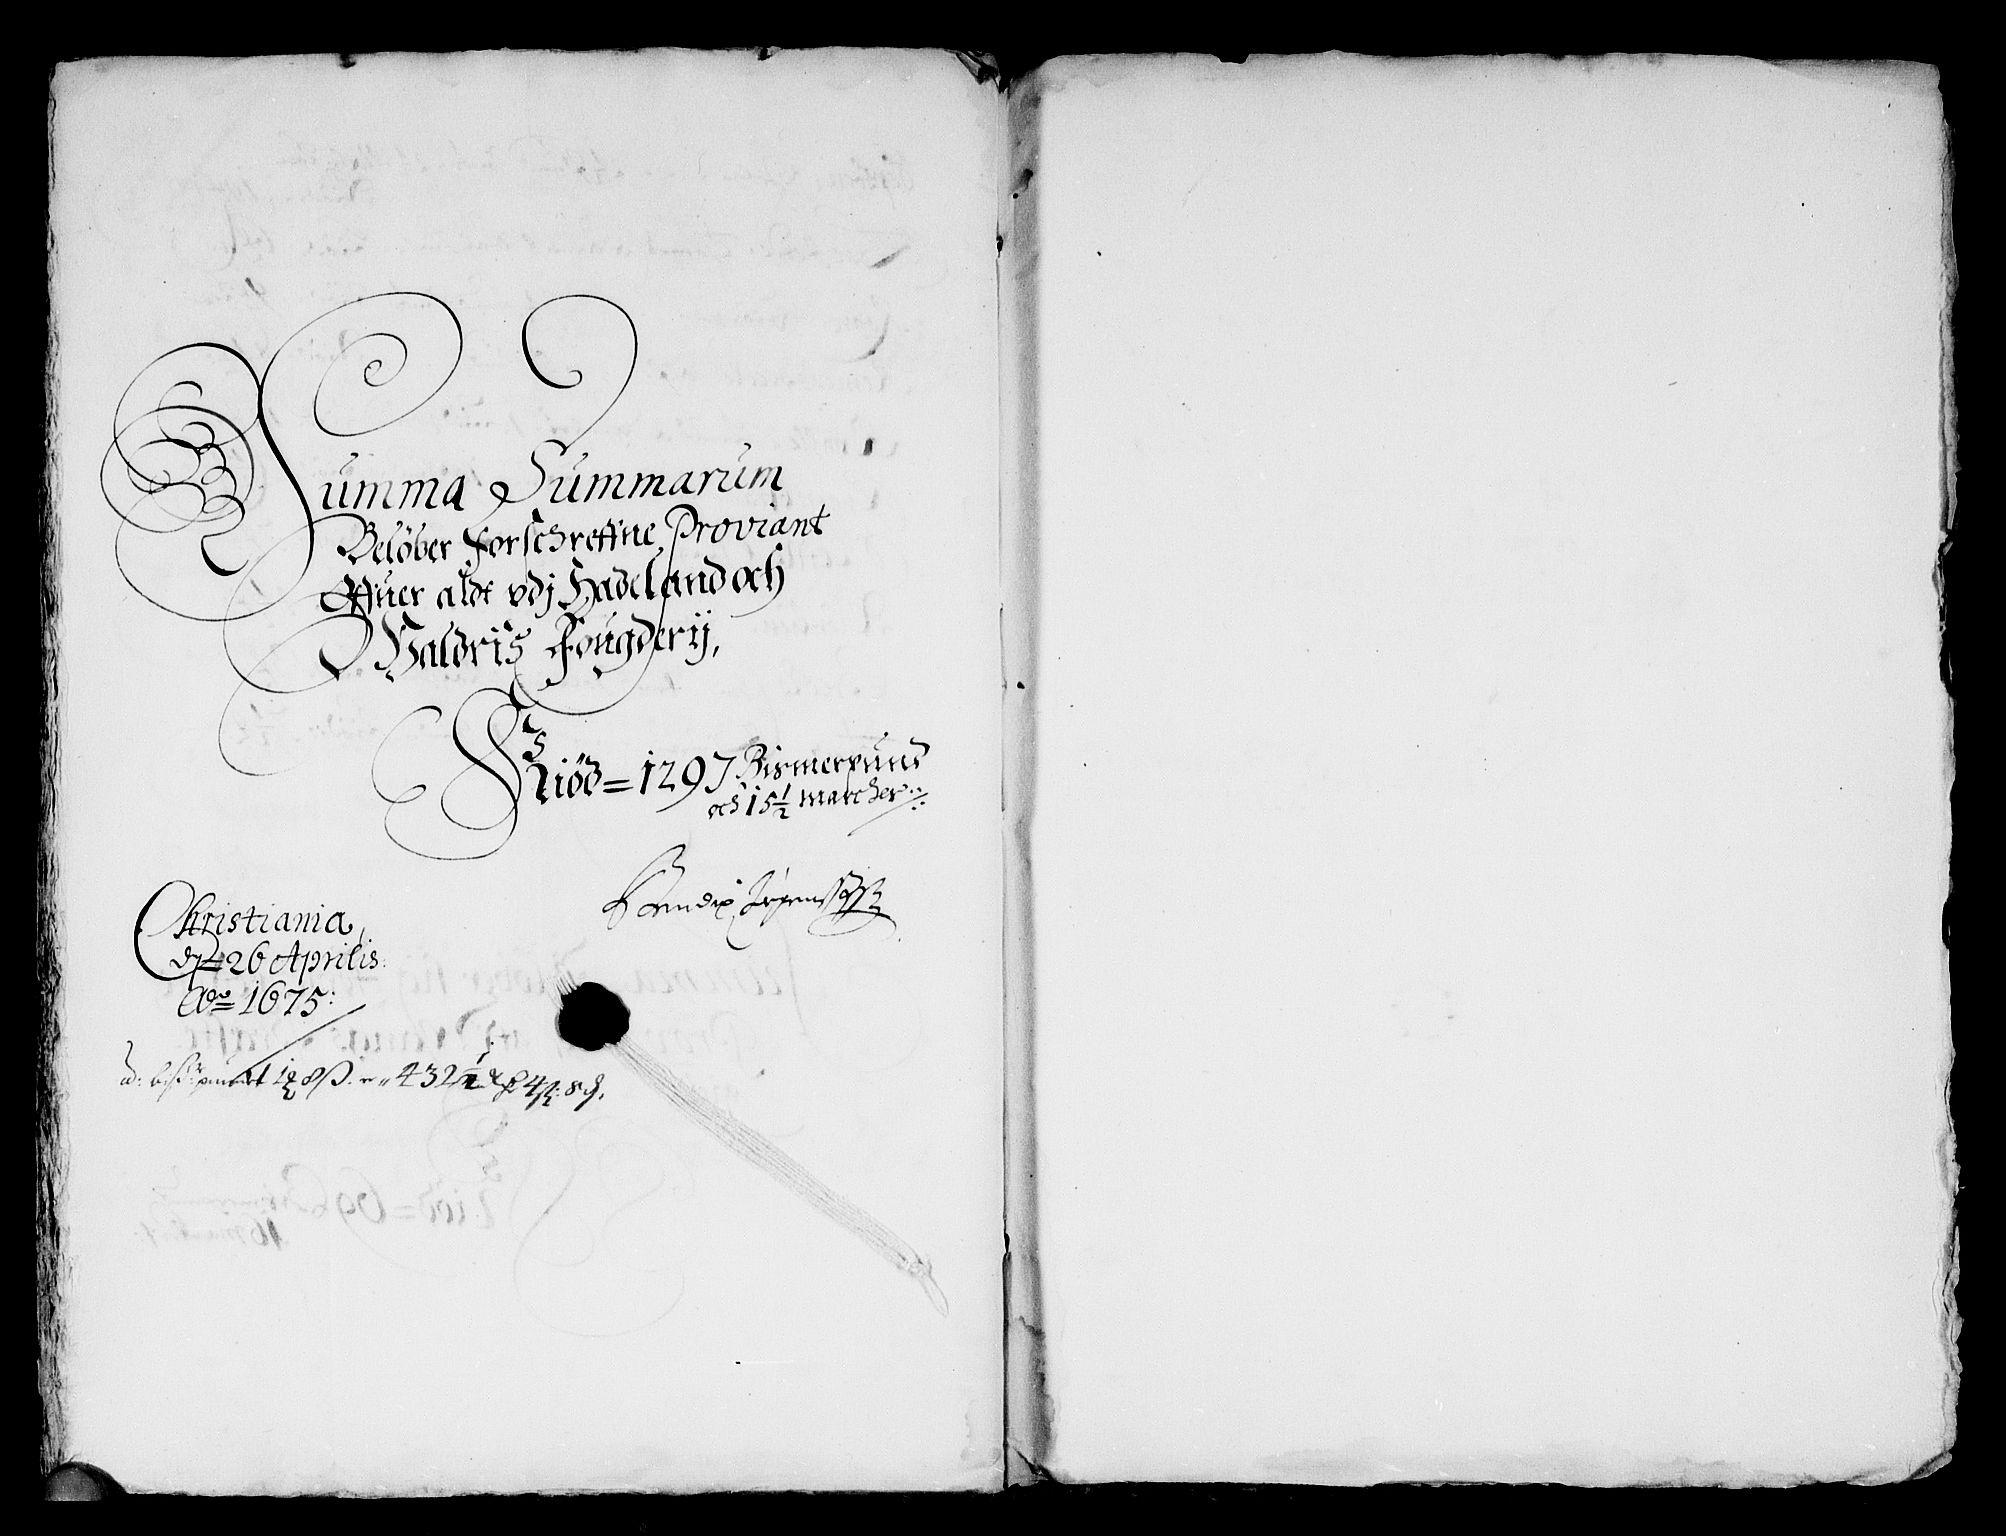 Summa Summarum
Beløber forschreffne Proviant
Offuer aldt vdj Hadeland och
Haldris Fougderÿ,
Kiød = 1297 Bismerpund
och 15½ marcher
Bendix Jørgenssøn
Christiania,
dn 26 Aprilis:
Ao 1675:
432½